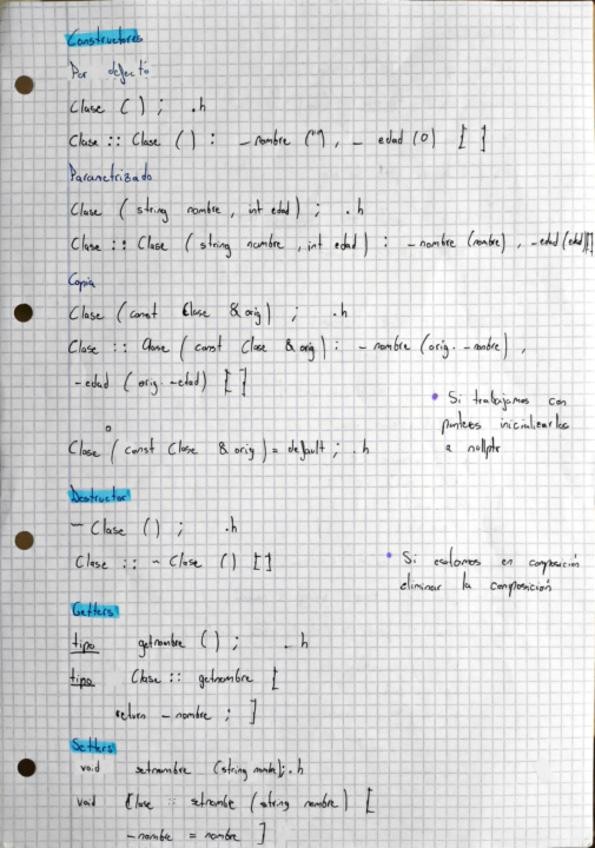 Constructores
Por defecto
Clase ( ) ; .h
Clase :: Clase ( ) : _nombre (""), _ edad (0) [ ]
Parametrizado
Clase ( string nombre, int edad ) ; .h
Clase :: Clase ( string nombre, int edad ) : -nombre (nombre) , -edad (edad)[]
Copia
Clase (const Clase & orig) ; .h
Clase :: Clase ( const Clase & orig) : -nombre (orig. -nombre) ,
-edad ( orig. -edad) [ ]
• Si trabajamos con
punteros inicializarlos
a nullptr
o
Clase ( const Clase & orig ) = default ; .h
Destructor
~ Clase ( ) ; .h
Clase :: ~ Clase ( ) [ ]
• Si estamos en composición
eliminar la composición
Getters
tipo getnombre ( ) ; .h
tipo Clase :: getnombre [
return - nombre ; ]
Setters
void setnombre (string nombre); .h
void Clase :: setnombre (string nombre) [
-nombre = nombre ]